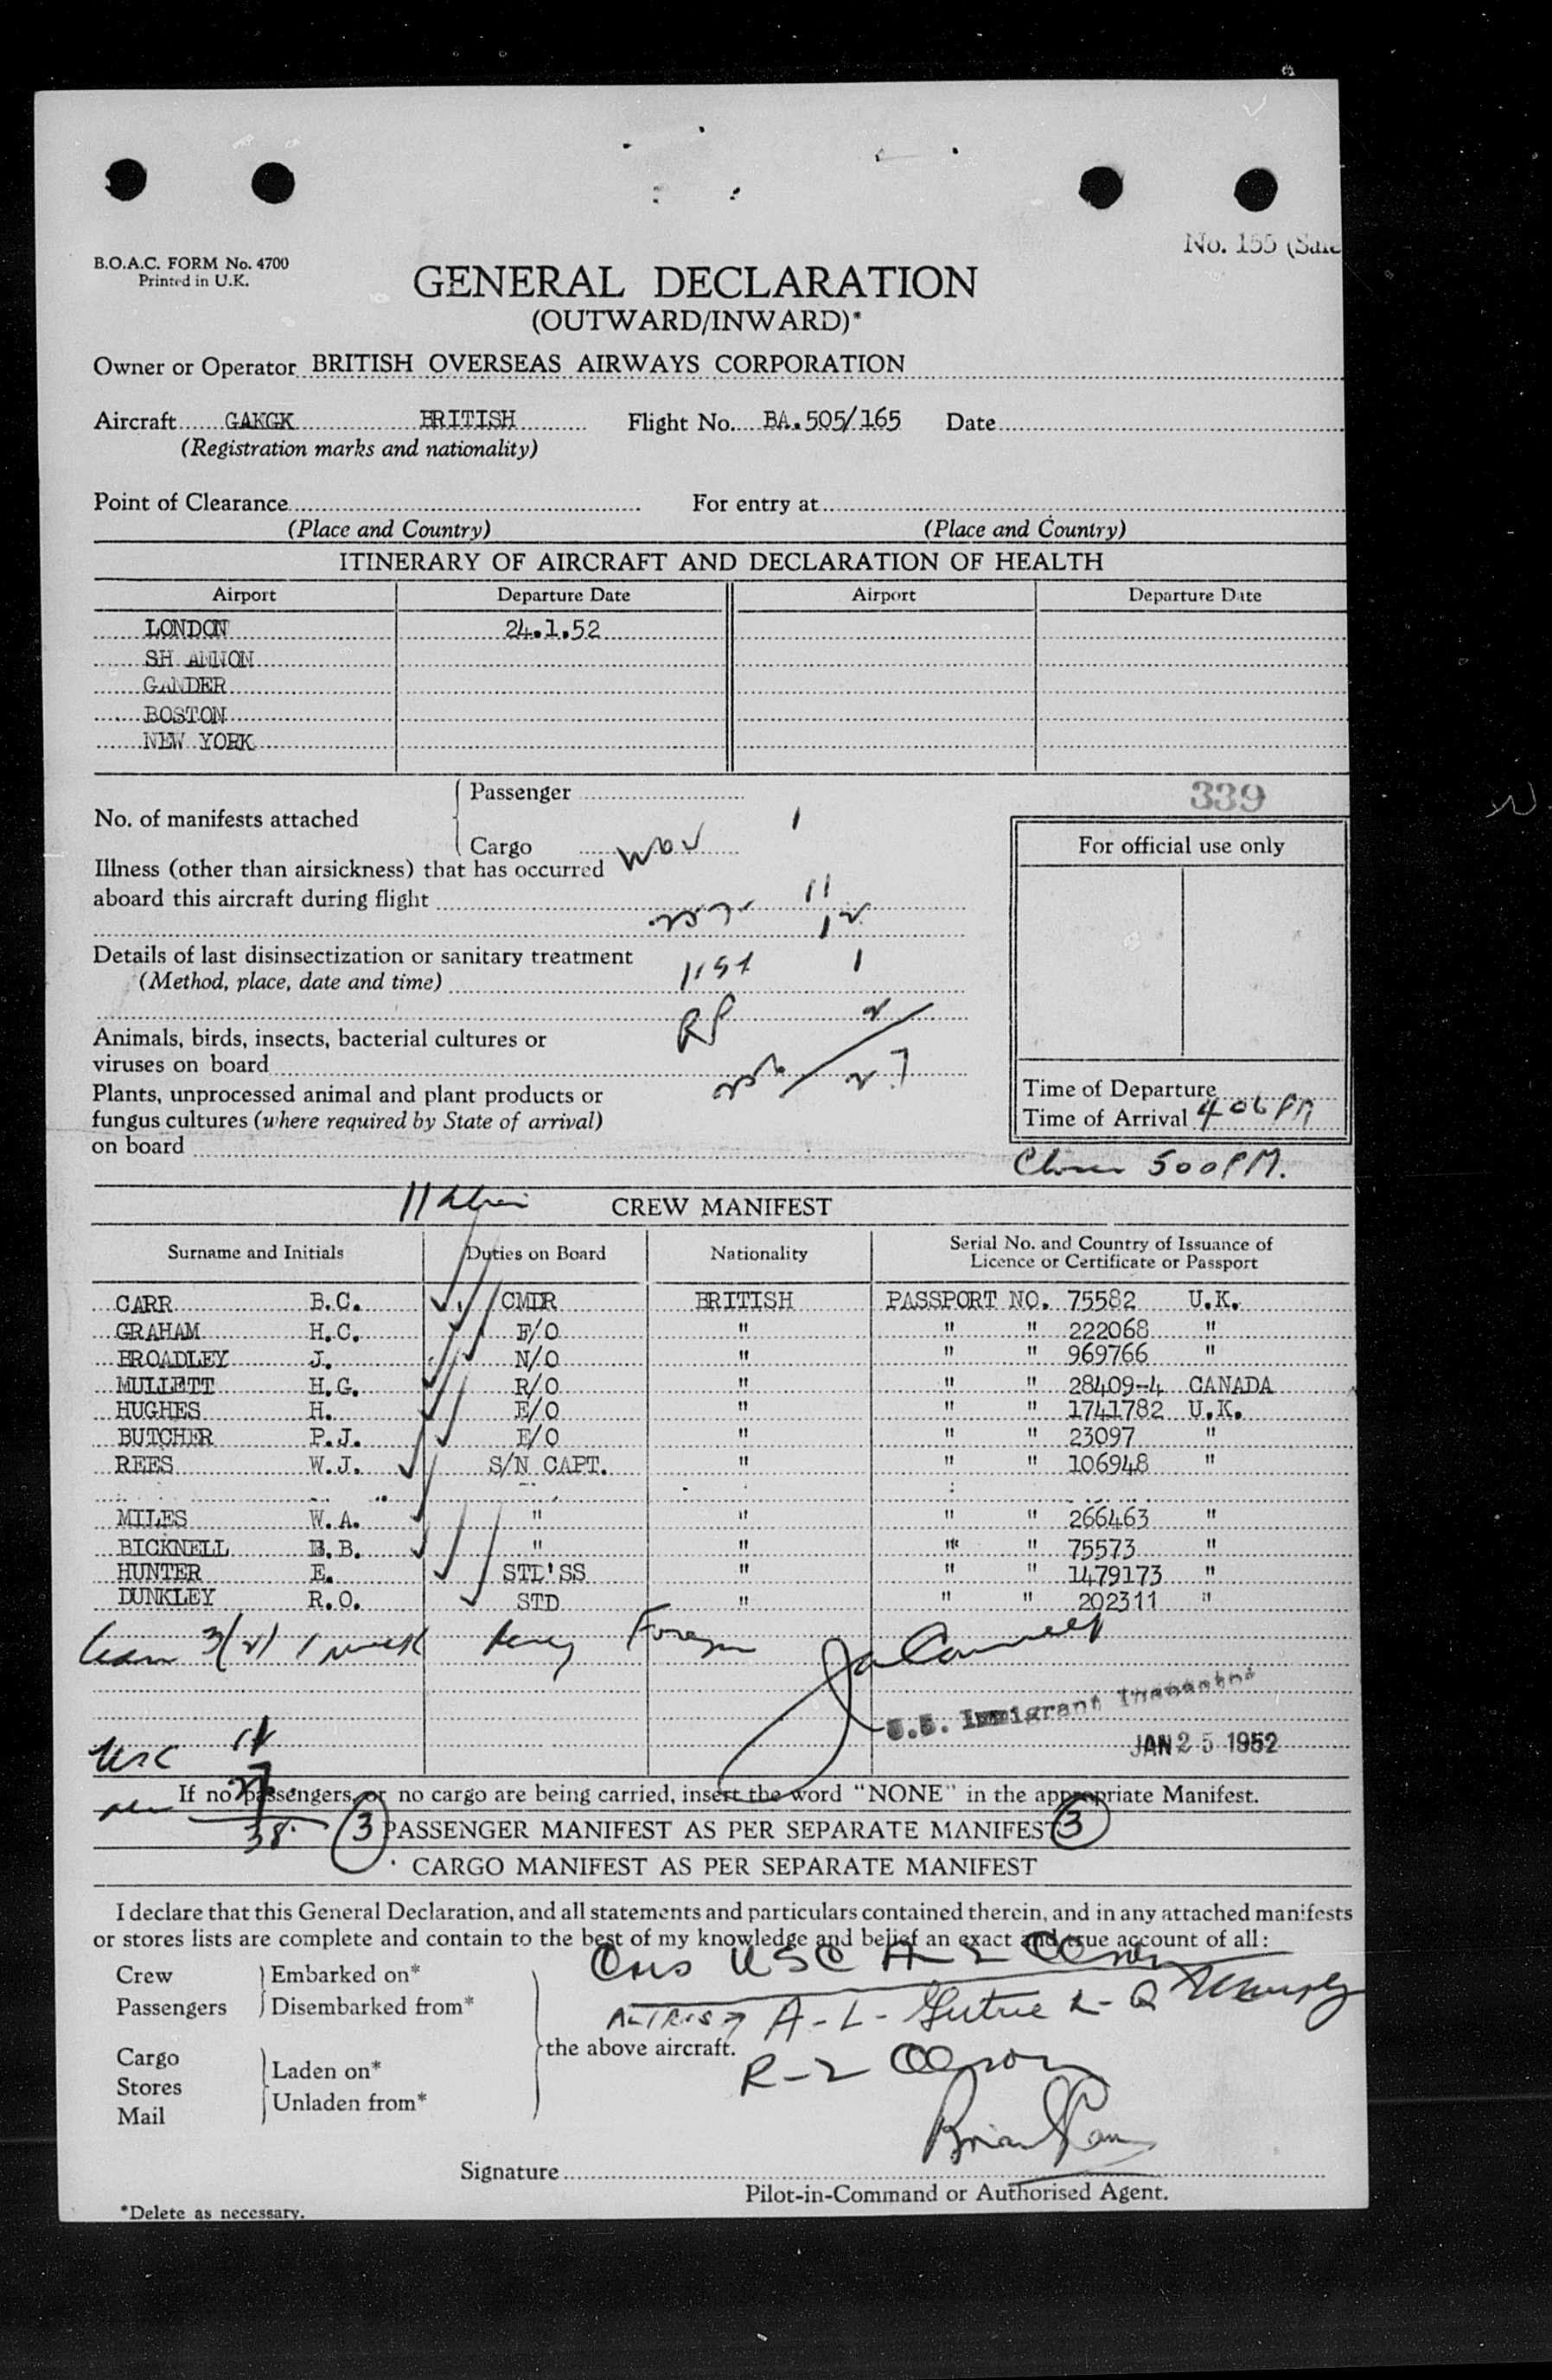 No. 155
B.O.A.C. FORM No. 4700
Printed in U.K.
GENERAL DECLARATION
(OUTWARD/INWARD)*
Owner or Operator BRITISH OVERSEAS AIRWAYS CORPORATION
Aircraft GAKGK BRITISH Flight No. BA.505/165 Date
(Registration marks and nationality)
Point of Clearance For entry at
(Place and Country) (Place and Country)
ITINERARY OF AIRCRAFT AND DECLARATION OF HEALTH
Airport Departure Date Airport Departure Date
LONDON 24.1.52
SH ANNON
GANDER
BOSTON
NEW YORK
339
Passenger
No. of manifests attached
Cargo
1
For official use only
Illness (other than airsickness) that has occurred
aboard this aircraft during flight
11
12
Details of last disinsectization or sanitary treatment
(Method, place, date and time)
1
RP
Animals, birds, insects, bacterial cultures or
viruses on board
Plants, unprocessed animal and plant products or
fungus cultures (where required by State of arrival)
on board
Time of Departure
Time of Arrival 4 06 PM
500 PM.
11
CREW MANIFEST
Surname and Initials Duties on Board Nationality Serial No. and Country of Issuance of
Licence or Certificate or Passport
CARR B.C. CMDR BRITISH PASSPORT NO. 75582 U.K.
GRAHAM H.C. F/O " " " 222068 "
BROADLEY J. N/O " " " 969766 "
MULLETT H.G. R/O " " " 28409-4 CANADA
HUGHES H. E/O " " " 1741782 U.K.
BUTCHER P.J. E/O " " " 23097 "
REES W.J. S/N CAPT. " " " 106948 "
MILES W.A. " " " " 266463 "
BICKNELL E.B. " " " " 75573 "
HUNTER E. STD'SS " " " 1479173 "
DUNKLEY R.O. STD " " " 202311 "
U.S. Immigrant Inspector
JAN 25 1952
USC 11
27
38
If no passengers, or no cargo are being carried, insert the word "NONE" in the appropriate Manifest.
3 PASSENGER MANIFEST AS PER SEPARATE MANIFEST 3
CARGO MANIFEST AS PER SEPARATE MANIFEST
I declare that this General Declaration, and all statements and particulars contained therein, and in any attached manifests
or stores lists are complete and contain to the best of my knowledge and belief an exact and true account of all:
Crew Embarked on*
Passengers Disembarked from*
USC A-2
A-L-
the above aircraft.
R-2
Cargo
Stores
Mail
Laden on*
Unladen from*
Signature
Pilot-in-Command or Authorised Agent.
*Delete as necessary.